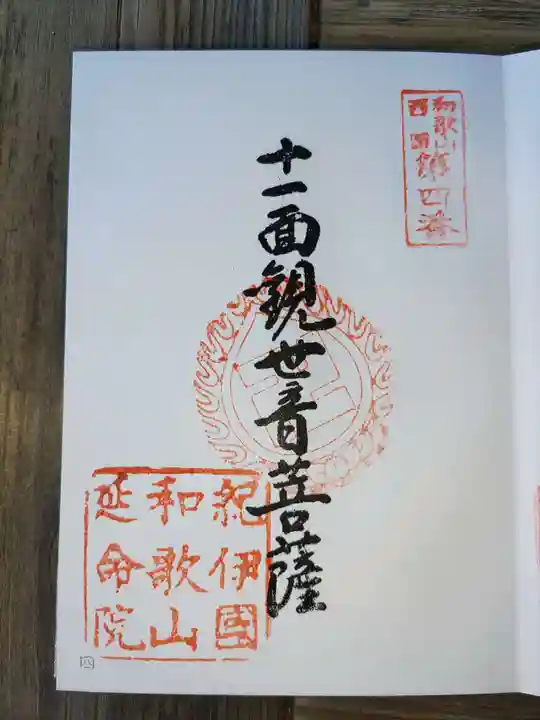 和歌山
西国
第四番
十一面観世音菩薩
紀伊國
和歌山
延命院
四